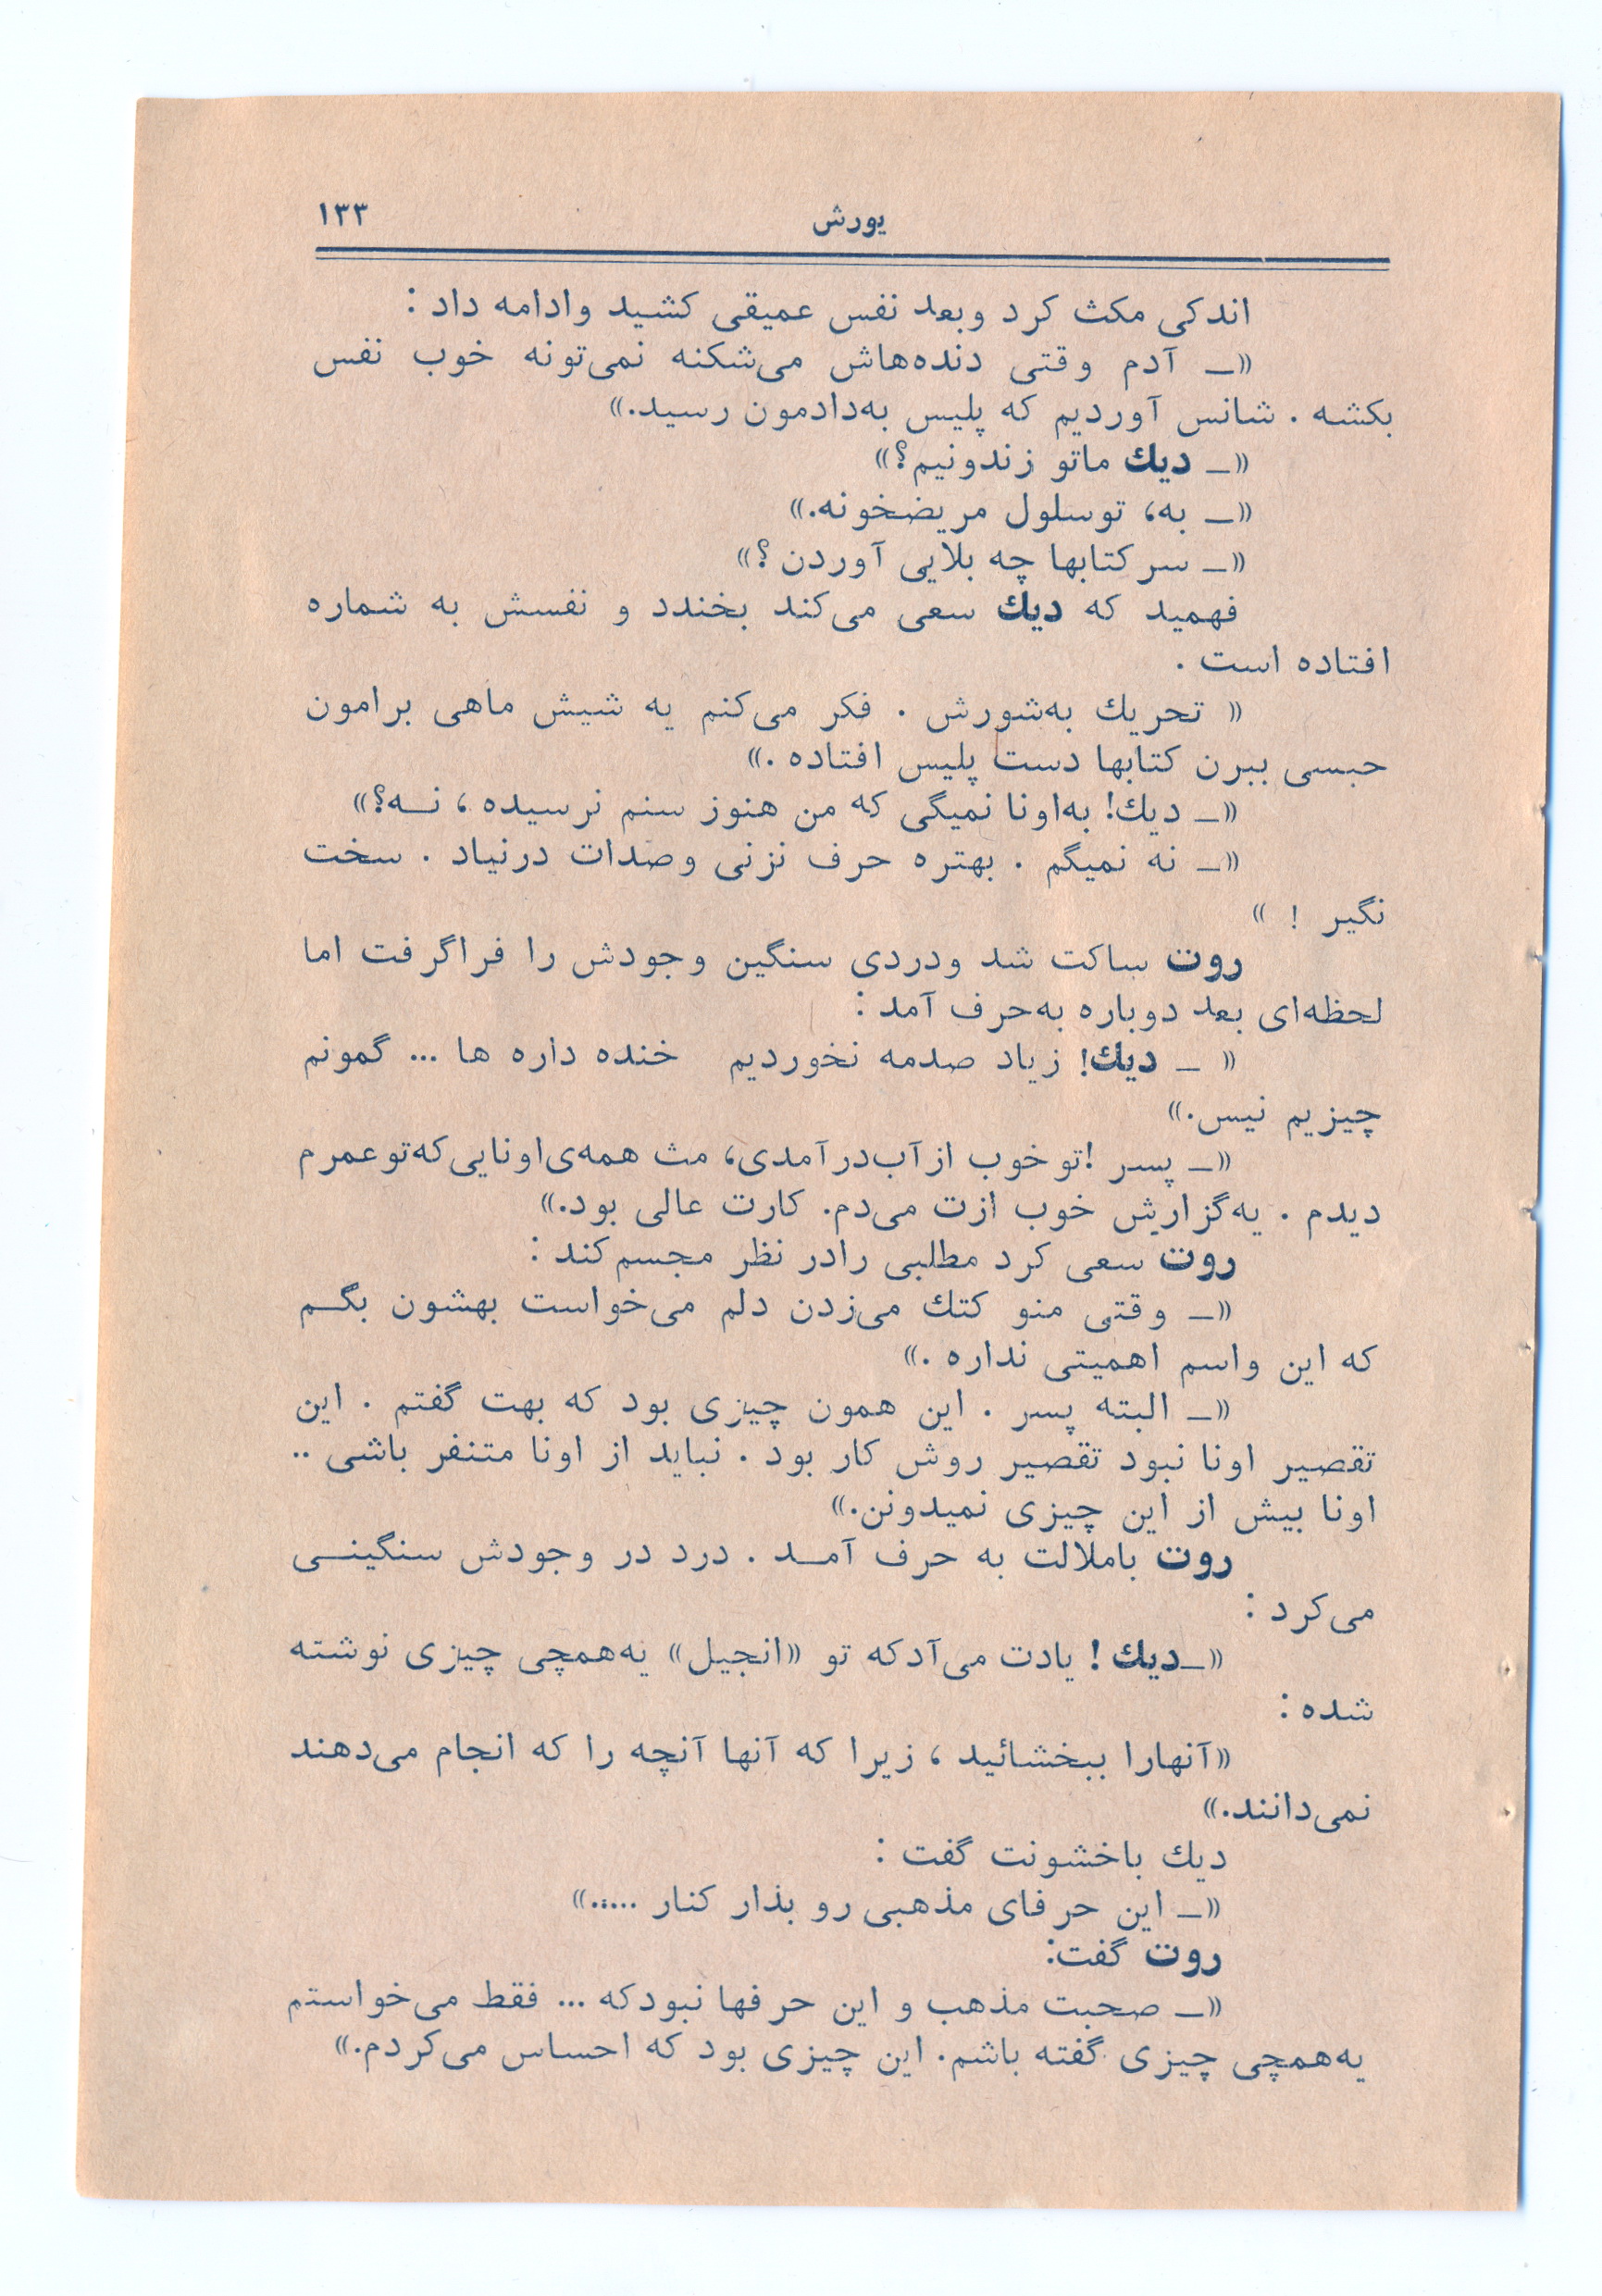 یورش
۱۳۳
اندکی مکث کرد وبعد نفس عمیقی کشید وادامه داد :
«ــ آدم وقتی دنده‌هاش می‌شکنه نمی‌تونه خوب نفس
بکشه . شانس آوردیم که پلیس به‌دادمون رسید.»
«ــ دیك ماتو زندونیم؟»
«ــ به، توسلول مریضخونه.»
«ــ سر کتابها چه بلایی آوردن ؟»
فهمید که دیك سعی می‌کند بخندد و نفسش به شماره
افتاده است .
« تحریك به‌شورش . فکر می‌کنم یه شیش ماهی برامون
حبسی ببرن کتابها دست پلیس افتاده .»
«ــ دیك! به‌اونا نمیگی که من هنوز سنم نرسیده ، نــه؟»
«ــ نه نمیگم . بهتره حرف نزنی وصدات درنیاد . سخت
نگیر ! »
روت ساکت شد ودردی سنگین وجودش را فراگرفت اما
لحظه‌ای بعد دوباره به‌حرف آمد :
« ــ دیك! زیاد صدمه نخوردیم خنده داره ها ... گمونم
چیزیم نیس.»
«ــ پسر !تو خوب از آب‌درآمدی، مث همه‌ی‌اونایی‌که‌توعمرم
دیدم . یه‌گزارش خوب ازت می‌دم. کارت عالی بود.»
روت سعی کرد مطلبی رادر نظر مجسم‌کند :
«ــ وقتی منو کتك می‌زدن دلم می‌خواست بهشون بگــم
که این واسم اهمیتی نداره .»
«ــ البته پسر . این همون چیزی بود که بهت گفتم . این
تقصیر اونا نبود تقصیر روش کار بود . نباید از اونا متنفر باشی ..
اونا بیش از این چیزی نمیدونن.»
روت باملالت به حرف آمــد . درد در وجودش سنگینــی
می‌کرد :
«ــدیك ! یادت می‌آدکه تو «انجیل» یه‌همچی چیزی نوشته
شده :
«آنهارا ببخشائید ، زیرا که آنها آنچه را که انجام می‌دهند
نمی‌دانند.»
دیك باخشونت گفت :
«ــ این حرفای مذهبی رو بذار کنار .....»
روت گفت:
«ــ صحبت مذهب و این حرفها نبودکه ... فقط می‌خواستم
یه‌همچی چیزی گفته باشم. این چیزی بود که احساس می‌کردم.»